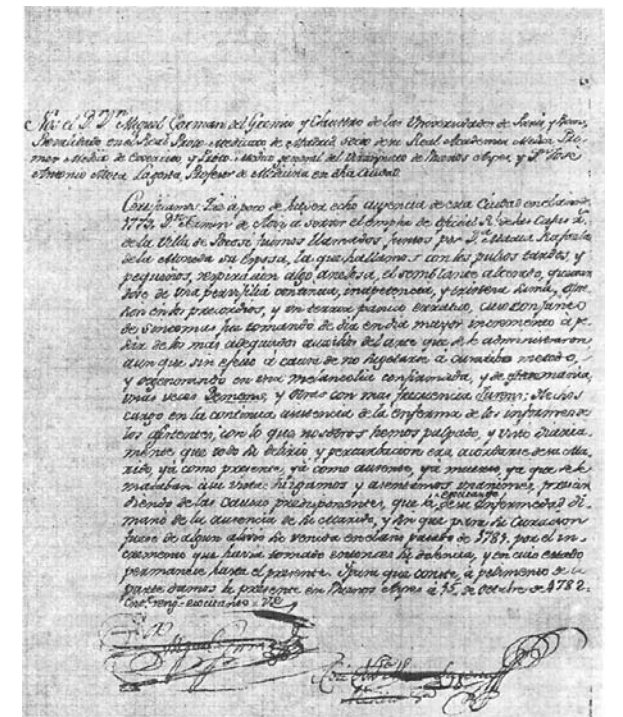 Nos el D.r D.n Miguel Gorman del Gremio y Claustro de las Universidades de Paris y Rems,
Revalidado en el Real Proto-Medicato de Madrid, socio de su Real Academia Medica, Pri-
mer Medico de Exercito, y Proto-Medico general del Virreynato de Buenos Ayres, y D.n Jose
Antonio Mota Lagosta, Profesor de Medicina en dha Ciudad.
Certificamos: Que à poco de haver echo ausencia de esta Ciudad en el año de
1773, D.n Fermin de Aoiz a servir el empleo de Oficial R.l de las Caxas
de la Villa de Potosi fuimos llamados juntos por D.a Maria Rafaela
de la Moneda su Esposa, la que hallamos con los pulsos tardos, y
pequeños, respiracion algo anelosa, el semblante alterado, quexan
dose de una pervigilia continua, inapetencia, y tristeza suma,
hen en los precordios, y un terror panico erratico, cuio conjunto
de Sintomas fue tomando de dia en dia mayor incremento à pe-
sar de los mas adequados auxilios del arte que se le administraron
aun que sin efecto à causa de no sujetarse à curativo metodo,
y degenerando en una melancolia confirmada, y de esta mania,
unas veces Demens, y otras con mas frecuencia furens: Hechos
cargo en la continua asistencia de la enferma de los informes de
los asistentes, con lo que nosotros hemos palpado, y visto diaria-
mente que todo su delirio y perturbacion era acordarse de su Ma-
rido, yá como presente, yá como ausente, ya muerto, ya que se le
mataban à su vista: Jusgamos y asentimos unanimes, prescin
diendo de las causas predisponentes, que la excitante de su Enfermedad di-
mano de la ausencia de su marido, y sin que para su Curacion
fuese de algun alivio su venida en el año pasado de 1781. por el in-
cremento que havia tomado entonces su dolencia, y en cuio estado
permanece hasta el presente. Y para que conste, à pedimento de la
parte damos la presente en Buenos Ayres à 15, de Octubre de 1782.
Ent.e reng.s excitante = Vale
Miguel Gorman